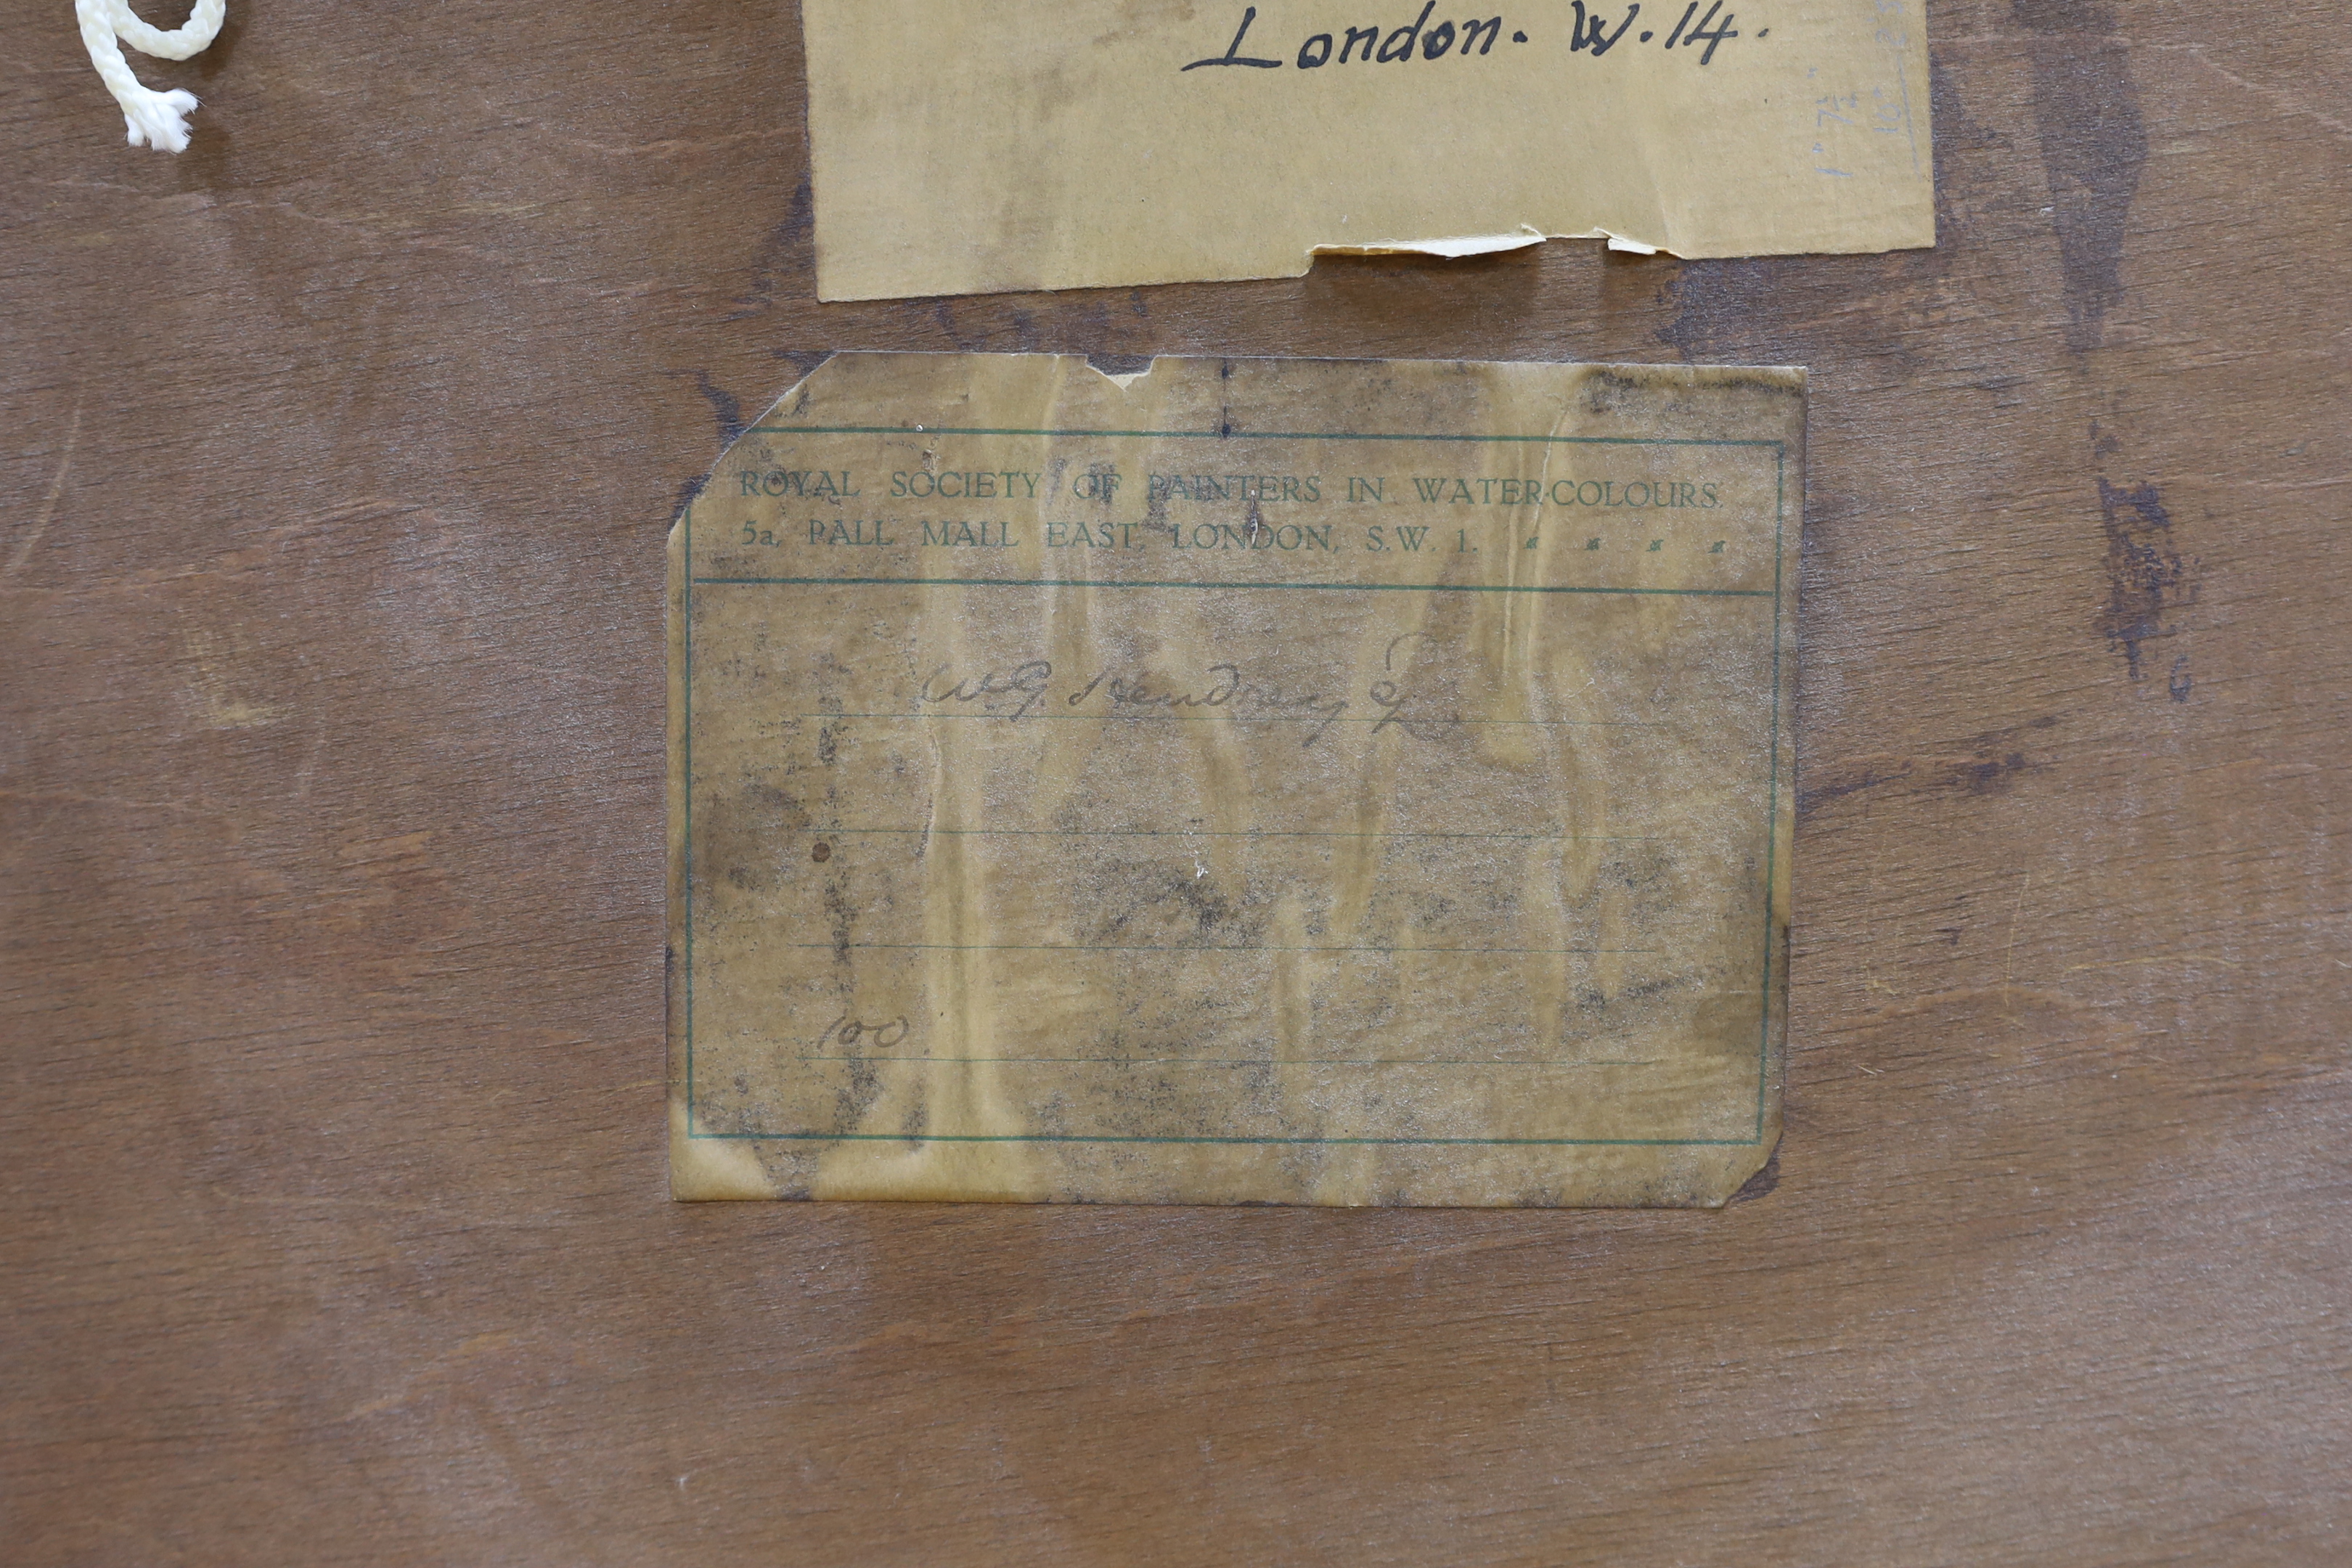 London. W.14.
1" 7½"
ROYAL SOCIETY OF PAINTERS IN WATER-COLOURS.
5a, PALL MALL EAST, LONDON, S.W. 1.
W.G. Hendrey Esq
100